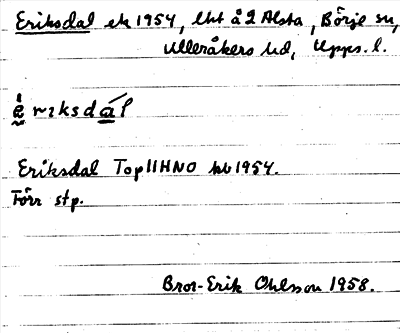 Eriksdal ek 1954, lht å 2 Alsta, Börje sn,
Ulleråkers hd, Upps. l.
Eriksdal Top 11HNO kb 1954.
Förr stp.
Bror-Erik Ohlsson 1958.